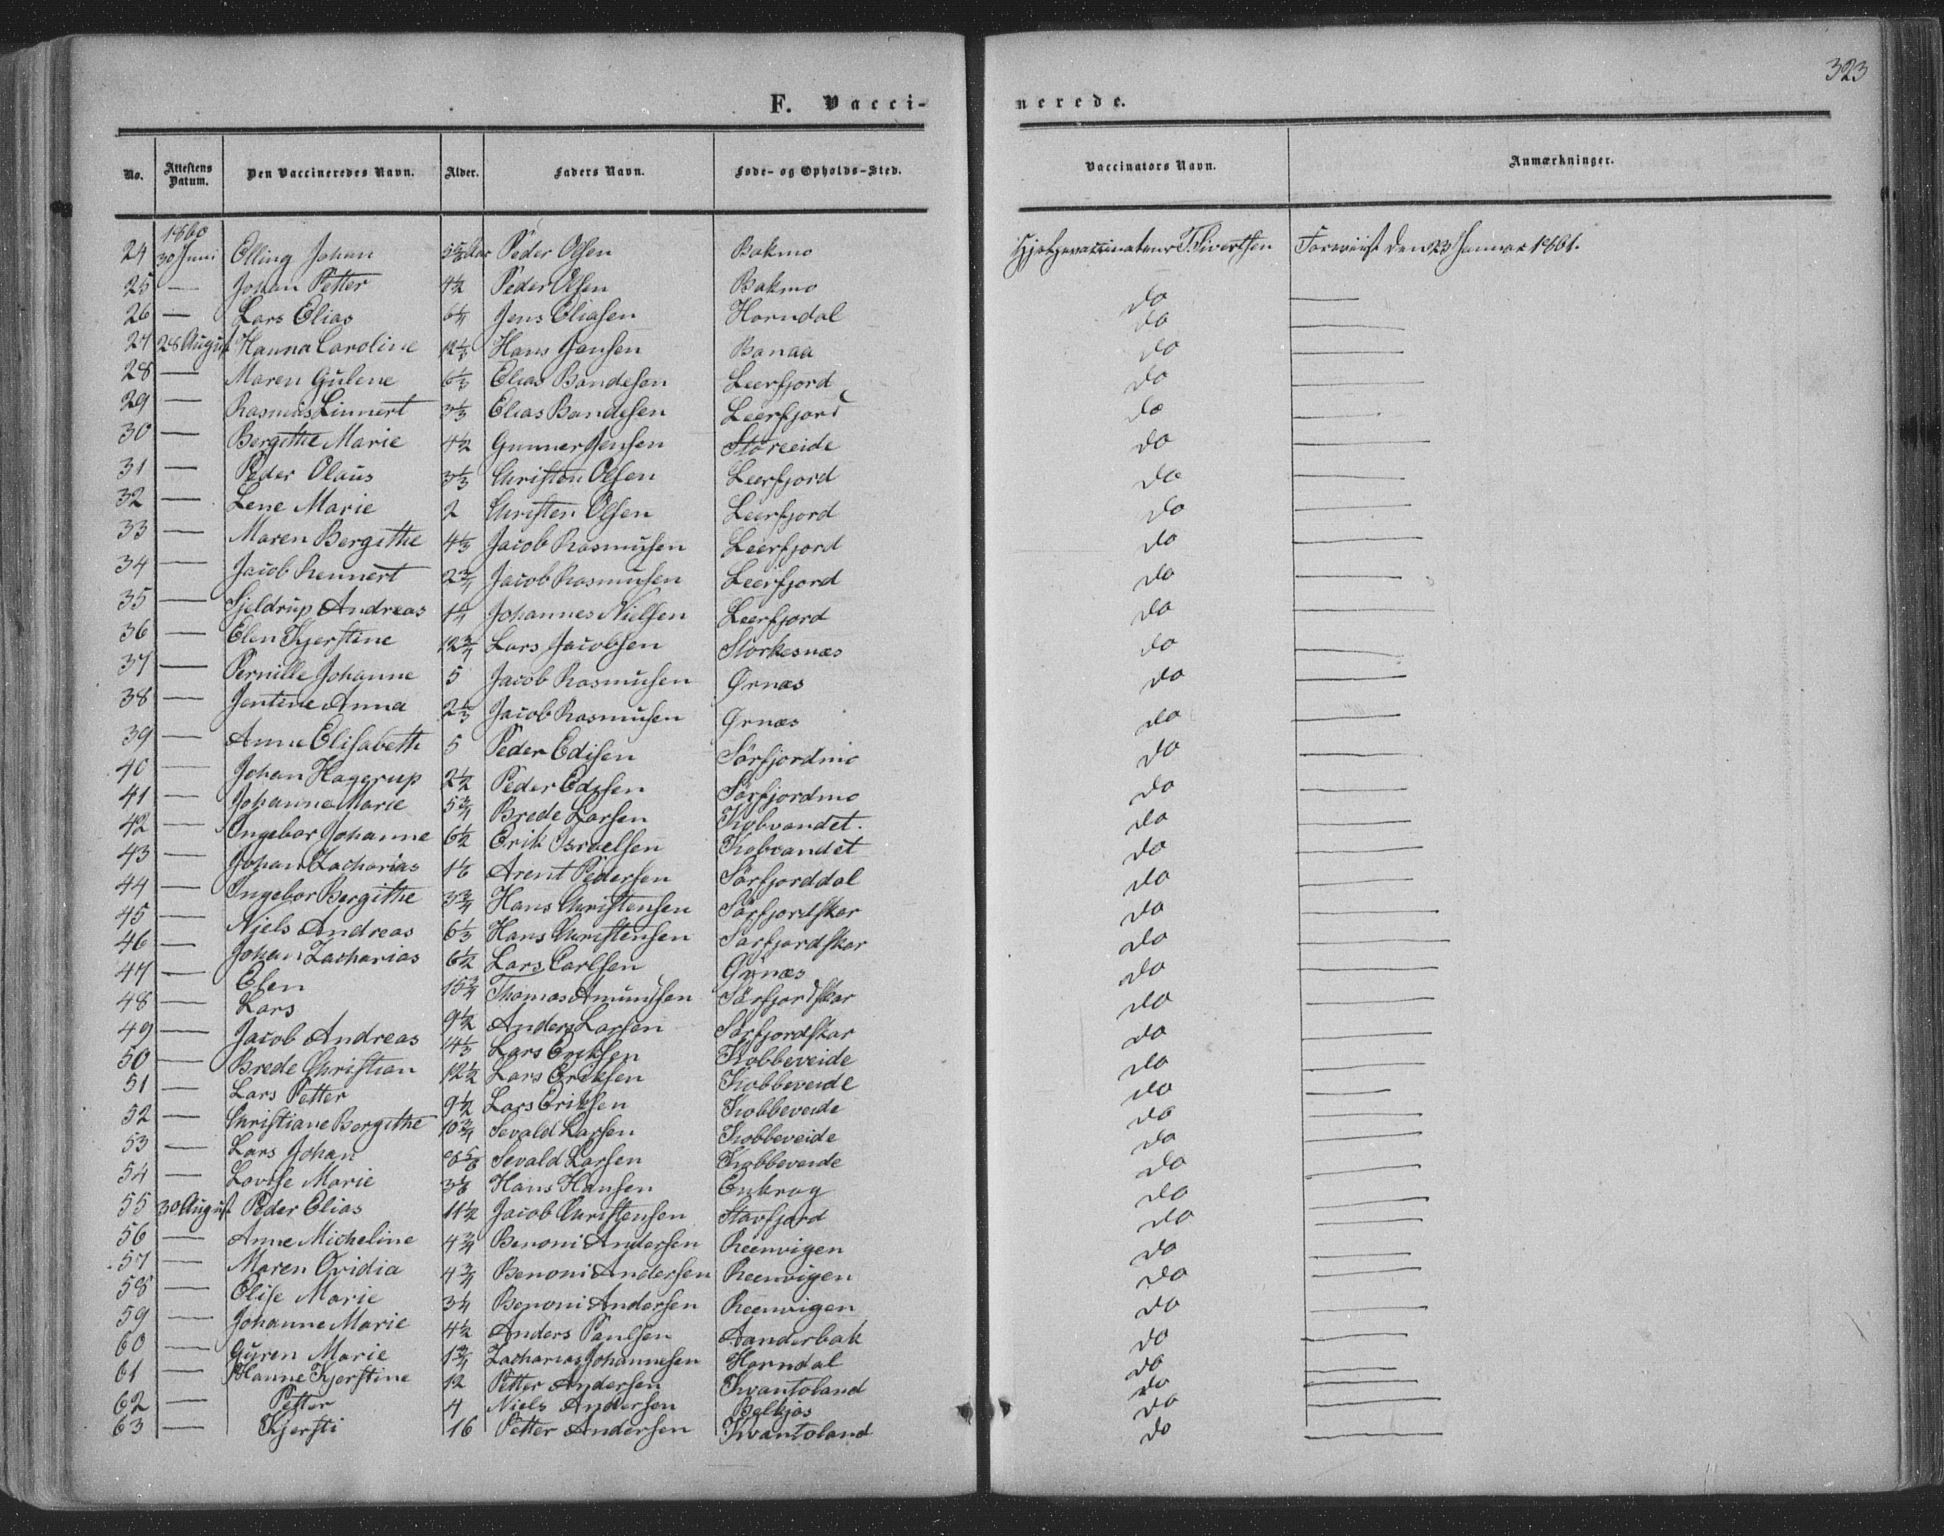 323
F. Vacci-
nerede.
No. Attestens Datum. Den Vaccineredes Navn. Alder. Faders Navn. Føde- og Opholds-Sted. Vaccinators Navn. Anmærkninger.
1860
24 30 Juni Elling Johan Peder Olsen Bakmo Hjelpevaccinateur Sivertsen Foreviist den 23 Januar 1861.
25 — Johan Petter 4½ Peder Olsen Bakmo do —
26 — Lars Elias 6¼ Jens Eliasen Horndal do —
27 28 August Hanna Caroline 12⅓ Hans Jansen Bonaa do —
28 — Maren Gulene 6⅓ Elias Bandesen Leerfjord do —
29 — Rasmus Linnert 3⅓ Elias Bandesen Leerfjord do —
30 — Bergithe Marie 4½ Gunner Jensen Storeeide do —
31 — Peder Olaus 3⅓ Christen Olsen Leerfjord do —
32 — Lene Marie 2 Christen Olsen Leerfjord do —
33 — Maren Bergithe 4⅓ Jacob Rasmusen Leerfjord do —
34 — Jacob Rennert 2¾ Jacob Rasmusen Leerfjord do —
35 — Hjeldrup Andreas 1¼ Johannes Nielsen Leerfjord do —
36 — Elen Kjerstine 12¾ Lars Jacobsen Storkesnæs do —
37 — Pernille Johanne 5 Jacob Rasmusen Ørnæs do —
38 — Jentine Anna 2⅓ Jacob Rasmusen Ørnæs do —
39 — Anne Elisabeth 5 Peder Edisen Sørfjordmo do —
40 — Johan Hagerup 2½ Peder Edisen Sørfjordmo do —
41 — Johanne Marie 5¾ Brede Larsen Kobvandet. do —
42 — Ingebor Johanne 6½ Erik Israelsen Kobvandet do —
43 — Johan Zacharias 1⅙ Arent Pedersen Sørfjorddal do —
44 — Ingebor Bergithe 3¾ Hans Christensen Sørfjordskar do —
45 — Niels Andreas 6⅓ Hans Christensen Sørfjordskar do —
46 — Johan Zacharias 6½ Lars Carlsen Ørnæs do —
47 — Elen 15¾ Thomas Amundsen Sørfjordskar do —
48 — Lars 9½ Anders Larsen Sørfjordskar do —
49 — Jacob Andreas 14⅓ Lars Eriksen Kobbeveide do —
50 — Brede Christian 12½ Lars Eriksen Kobbeveide do —
51 — Lars Petter 9½ Lars Eriksen Kobbeveide do —
52 — Christiane Bergithe 10¾ Sevald Larsen Kobbeveide do —
53 — Lars Johan 8⅚ Sevald Larsen Kobbeveide do —
54 — Lovise Marie 3⅙ Hans Hansen Enkrog do —
55 30 August Peder Elias 11½ Jacob Christensen Stavfjord do —
56 — Anne Micheline 4¾ Benoni Andersen Reenvigen do —
57 — Maren Ovidia 4¾ Benoni Andersen Reenvigen do —
58 — Elise Marie 3¼ Benoni Andersen Reenvigen do —
59 — Johanne Marie 4½ Anders Paulsen Aanderbak do —
60 — Guren Marie 1¾ Zacharias Johannesen Horndal do —
61 — Hanne Kjerstine 12 Petter Andersen Kvantoland do —
62 — Petter 4 Niels Andersen Belkjos do —
63 — Kjersti 16 Petter Andersen Kvantoland do —